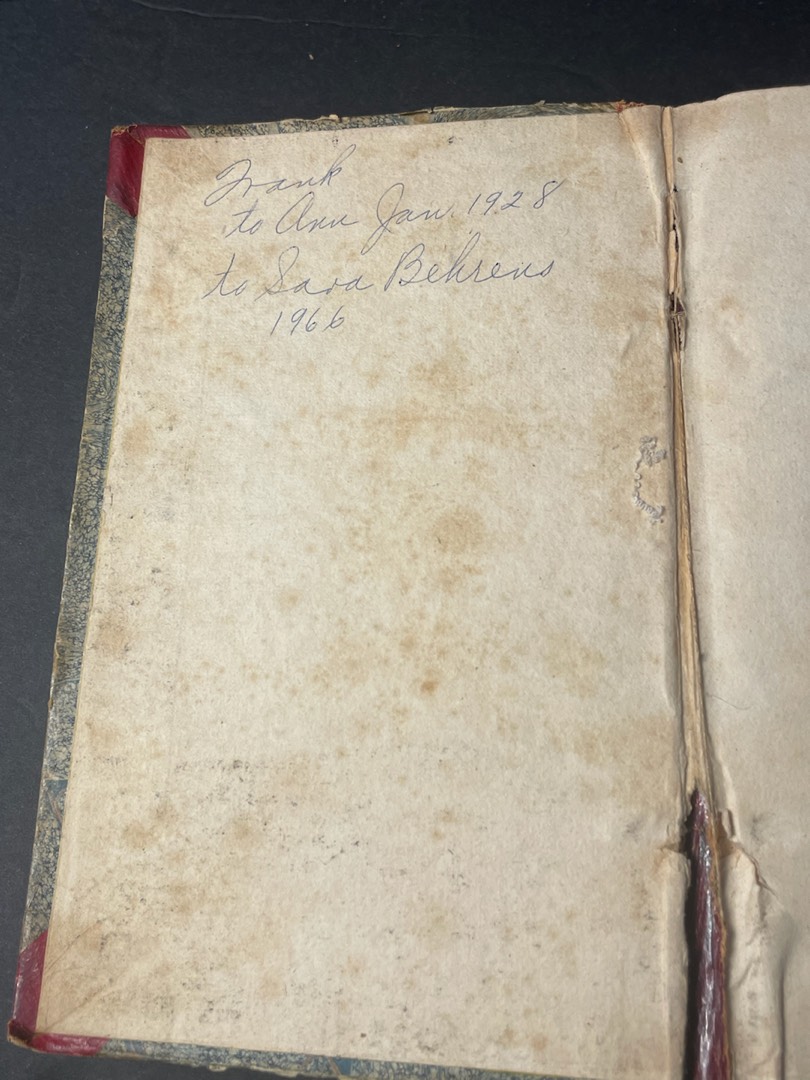 Frank
to Ann Jan. 1928
to Sara Behrens
1966